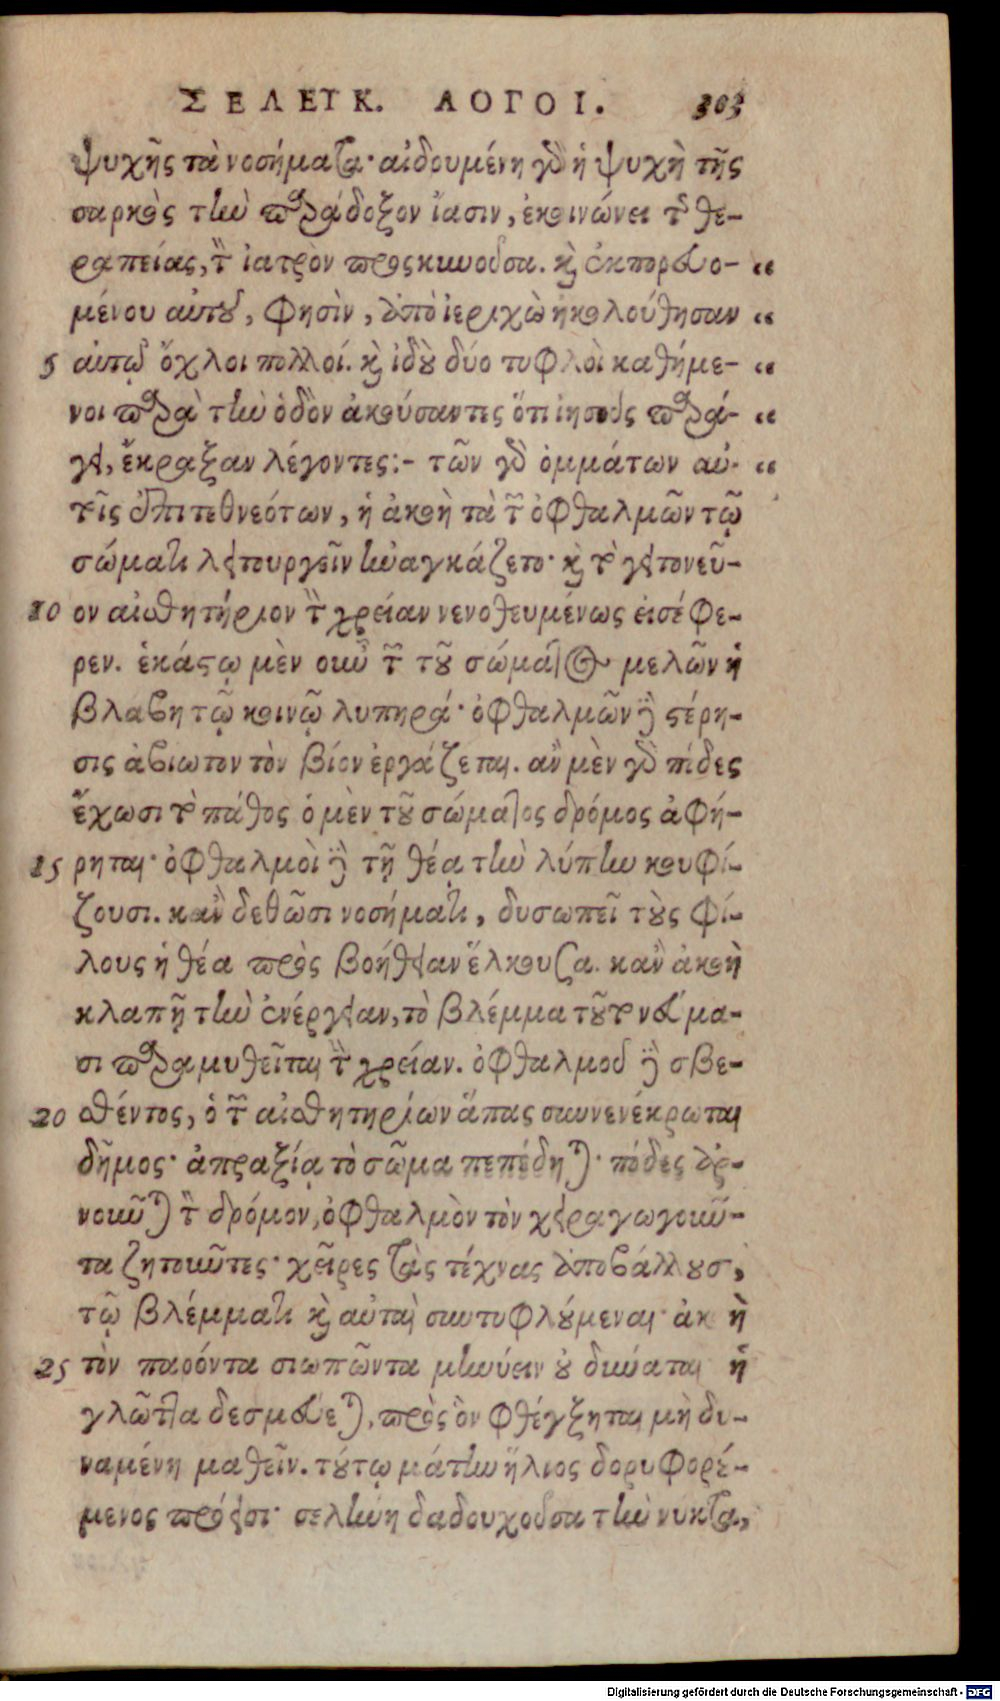 ΣΕΛΕΥΚ. ΛΟΓΟΙ. 303
ψυχῆς τὰ νοσήματα· αἰδουμένη γὰρ ἡ ψυχὴ τῆς
σαρκὸς τὴν παράδοξον ἴασιν, ἐκοινώνει τῆς θε-
ραπείας, τὸν ἰατρὸν προσκυνοῦσα. καὶ ἐκπορευο- “
μένου αὐτοῦ, φησὶν, ἀπὸ ἱεριχὼ ἠκολούθησαν “
5 αὐτῷ ὄχλοι πολλοί. καὶ ἰδοὺ δύο τυφλοὶ καθήμε- “
νοι παρὰ τὴν ὁδὸν ἀκούσαντες ὅτι ἰησοῦς παρά- “
γει, ἔκραξαν λέγοντες:- τῶν γὰρ ὀμμάτων αὐ- “
τοῖς ἐπιτεθνεότων, ἡ ἀκοὴ τὰ τῶν ὀφθαλμῶν τῷ
σώματι λειτουργεῖν ἠναγκάζετο· καὶ τὸ γειτονεῦ-
10 ον αἰσθητήριον τὴν χρείαν νενοθευμένως εἰσέφε-
ρεν. ἑκάστῳ μὲν οὖν τῶν τοῦ σώματος μελῶν ἡ
βλάβη τῷ κοινῷ λυπηρά· ὀφθαλμῶν δὲ στέρη-
σις ἀβίωτον τὸν βίον ἐργάζεται. ἂν μὲν γὰρ πόδες
ἔχωσι τὸ πάθος ὁ μὲν τοῦ σώματος δρόμος ἀφῄ-
15 ρηται· ὀφθαλμοὶ δὲ τῇ θέᾳ τὴν λύπην κουφί-
ζουσι. κἂν δεθῶσι νοσήματι, δυσωπεῖ τοὺς φί-
λους ἡ θέα πρὸς βοήθειαν ἕλκουσα. κἂν ἀκοὴ
κλαπῇ τὴν ἐνέργειαν, τὸ βλέμμα τοῦτο νεύμα-
σι παραμυθεῖται τὴν χρείαν. ὀφθαλμοῦ δὲ σβε-
20 σθέντος, ὁ τῶν αἰσθητηρίων ἅπας συννενέκρωται
δῆμος· ἀπραξίᾳ τὸ σῶμα πεπέδηται· πόδες ἀρ-
νοῦνται τὸν δρόμον, ὀφθαλμὸν τὸν χειραγωγοῦν-
τα ζητοῦντες· χεῖρες τὰς τέχνας ἀποβάλλουσι,
τῷ βλέμματι καὶ αὐταὶ συντυφλούμεναι· ἀκοὴ
25 τὸν παρόντα σιωπῶντα μηνύειν οὐ δύναται ἡ
γλῶττα δεσμεύεται, πρὸς ὃν φθέγξηται μὴ δυ-
ναμένη μαθεῖν. τούτῳ μάτην ἥλιος δορυφορέ-
μενος πρόεισι· σελήνη δᾳδουχοῦσα τὴν νύκτα,
Digitalisierung gefördert durch die Deutsche Forschungsgemeinschaft - DFG